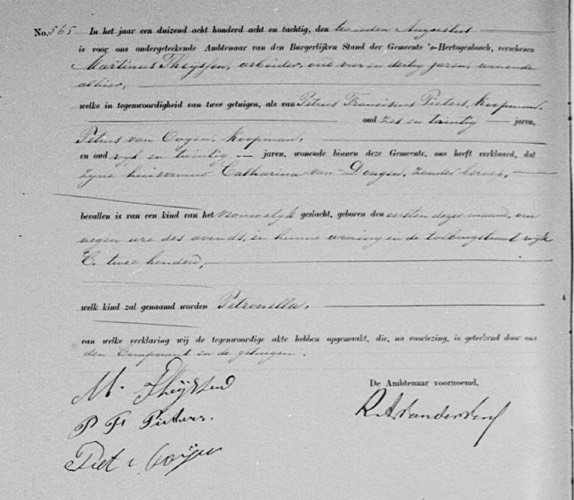 No. 565 In het jaar een duizend acht honderd acht en tachtig, den tweeden Augustus
is voor ons ondergeteekende Ambtenaar van den Burgerlijken Stand der Gemeente 's-Hertogenbosch, verschenen
Martinus Theyssen, arbeider, oud vier en dertig jaren, wonende
alhier,
welke in tegenwoordigheid van twee getuigen, als van Petrus Franciscus Pieters, Koopman,
oud zes en twintig jaren,
Petrus van Ooyen, Koopman,
en oud vijf en twintig jaren, wonende binnen deze Gemeente, ons heeft verklaard, dat
zyne huisvrouw Catharina van Dongen, zonder beroep,
bevallen is van een kind van het vrouwelijk geslacht, geboren den eersten dezer maand, om
negen ure des avonds, in hunne woning in de Tolbrugstraat wijk
C. twee honderd,
welk kind zal genaamd worden Petronella,
van welke verklaring wij de tegenwoordige akte hebben opgemaakt, die, na voorlezing, is geteekend door ons
den Comparant en de getuigen.
De Ambtenaar voornoemd,
M. Theyssen
P Fr Pieters.
Piet v Ooijen